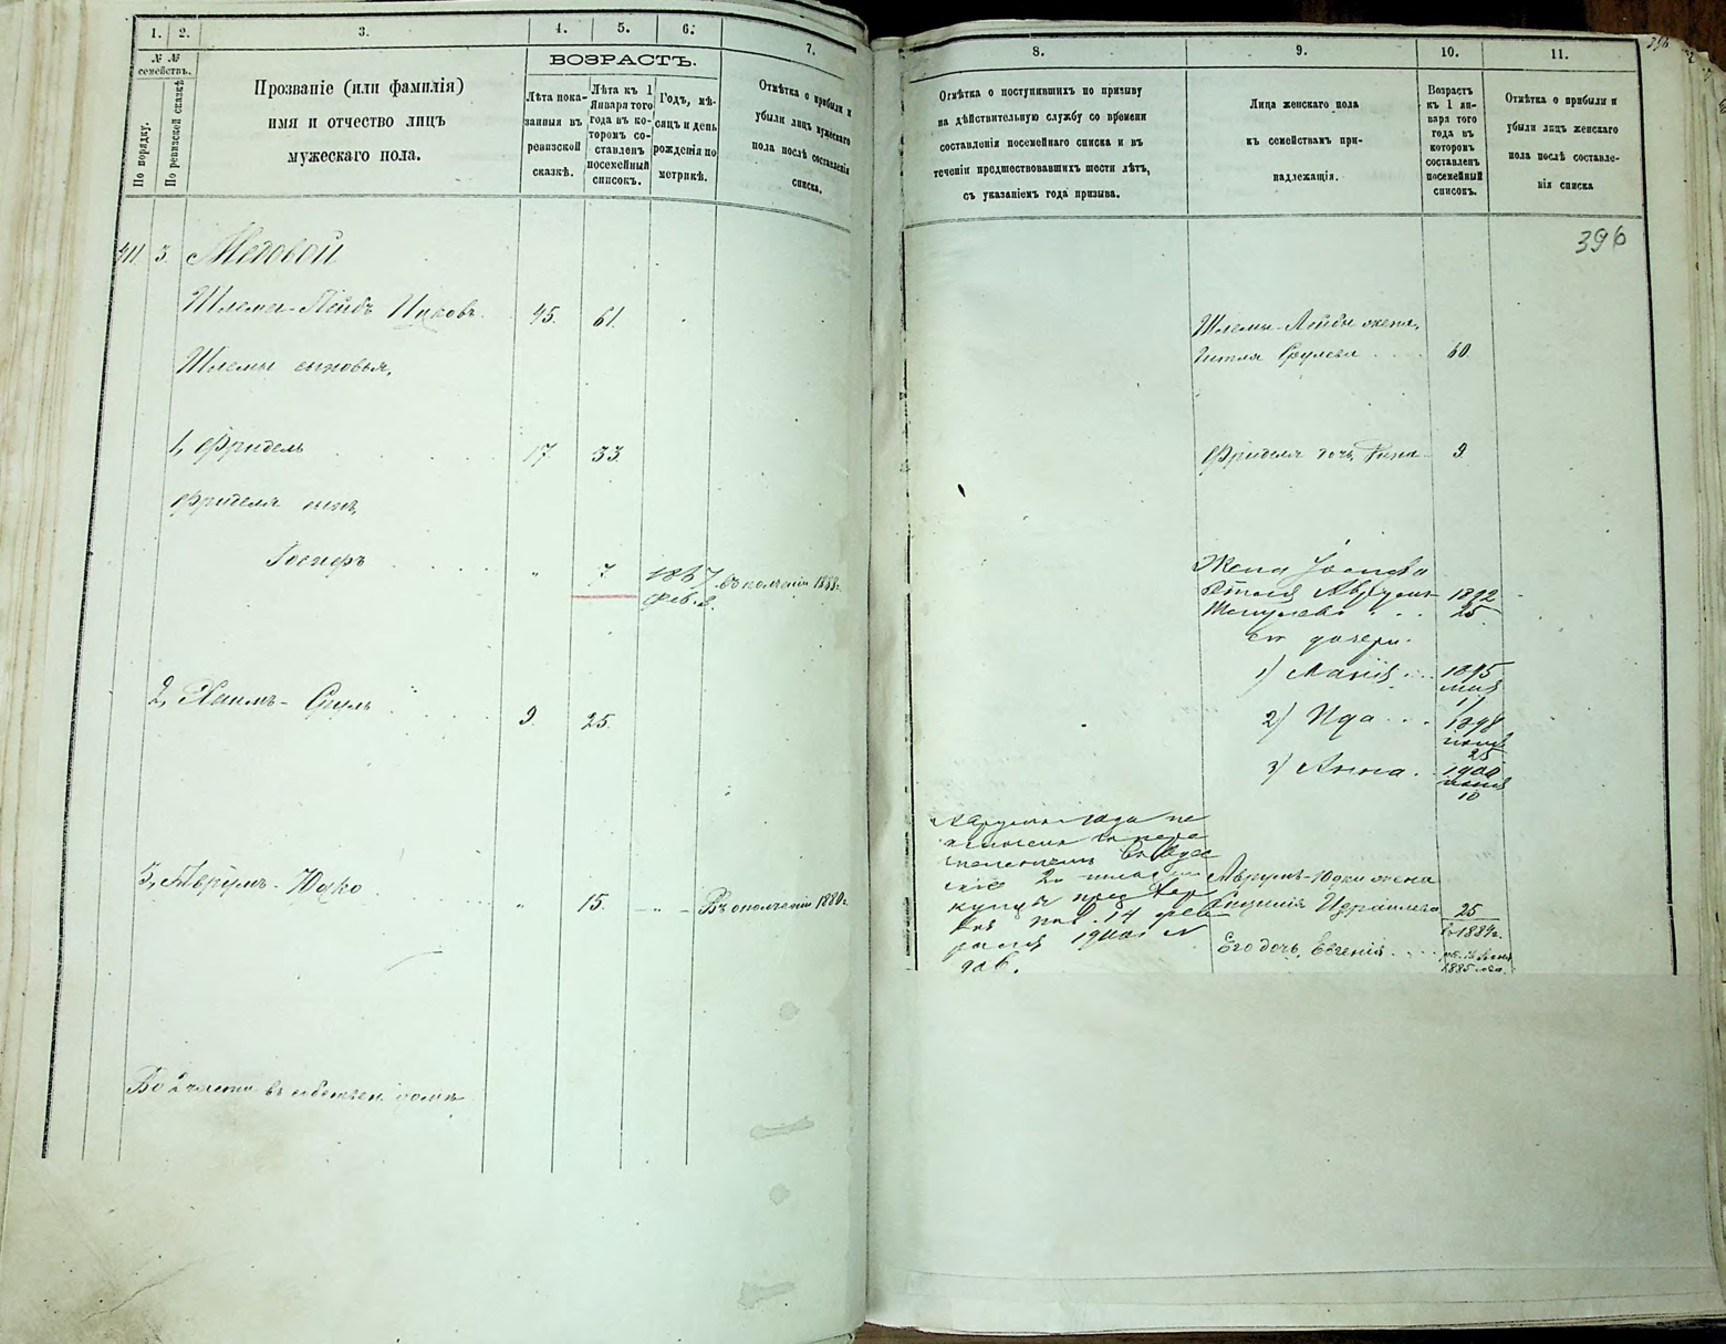 1. 2. 3. 4. 5. 6. 7.
№ №
семействъ.
По порядку.
По ревизской сказкѣ
Прозваніе (или фамилія)
имя и отчество лицъ
мужескаго пола.
ВОЗРАСТЪ.
Лѣта пока-
занныя въ
ревизской
сказкѣ.
Лѣта къ 1
Января того
года въ ко-
торомъ со-
ставленъ
посемейный
списокъ.
Годъ, мѣ-
сяцъ и день
рожденія по
метрикѣ.
Отмѣтка о прибыли и
убыли лицъ мужескаго
пола послѣ составленія
списка.
411 3. Медовой
Шлема-Лейбъ Ицковъ. 45. 61.
Шлемы сыновья,
1, Фридель 17. 33.
Фриделя сынъ,
Іосифъ " 7 1867 въ ополченіи 1888 г.
Фев. 2.
2, Хаимъ-Сруль 9. 25.
3, Аврумъ-Юдко " 15. - " - Въ ополченіи 1880 г.
Во 2 части въ собствен. домѣ
8. 9. 10. 11.
Отмѣтка о поступившихъ по призыву
на дѣйствительную службу со времени
составленія посемейнаго списка и въ
теченіи предшествовавшихъ шести лѣтъ,
съ указаніемъ года призыва.
Лица женскаго пола
къ семействамъ при-
надлежащія.
Возрастъ
къ 1 ян-
варя того
года въ
которомъ
составленъ
посемейный
списокъ.
Отмѣтка о прибыли и
убыли лицъ женскаго
пола послѣ составле-
нія списка
396
396
Шлемы-Лейбы жена,
Срулева 60.
Фриделя дочь 9
Жена Іосифа
1892
25
дочери.
1) Манія 1895
11
2) Ида 1898
25
3) Анна 1900
10
2
купцы
14 фев
1900 г. №
906.
Аврумъ-Юдки жена
Израилева 25
въ 1884 г.
Его дочь, Евгенія
1885 года.